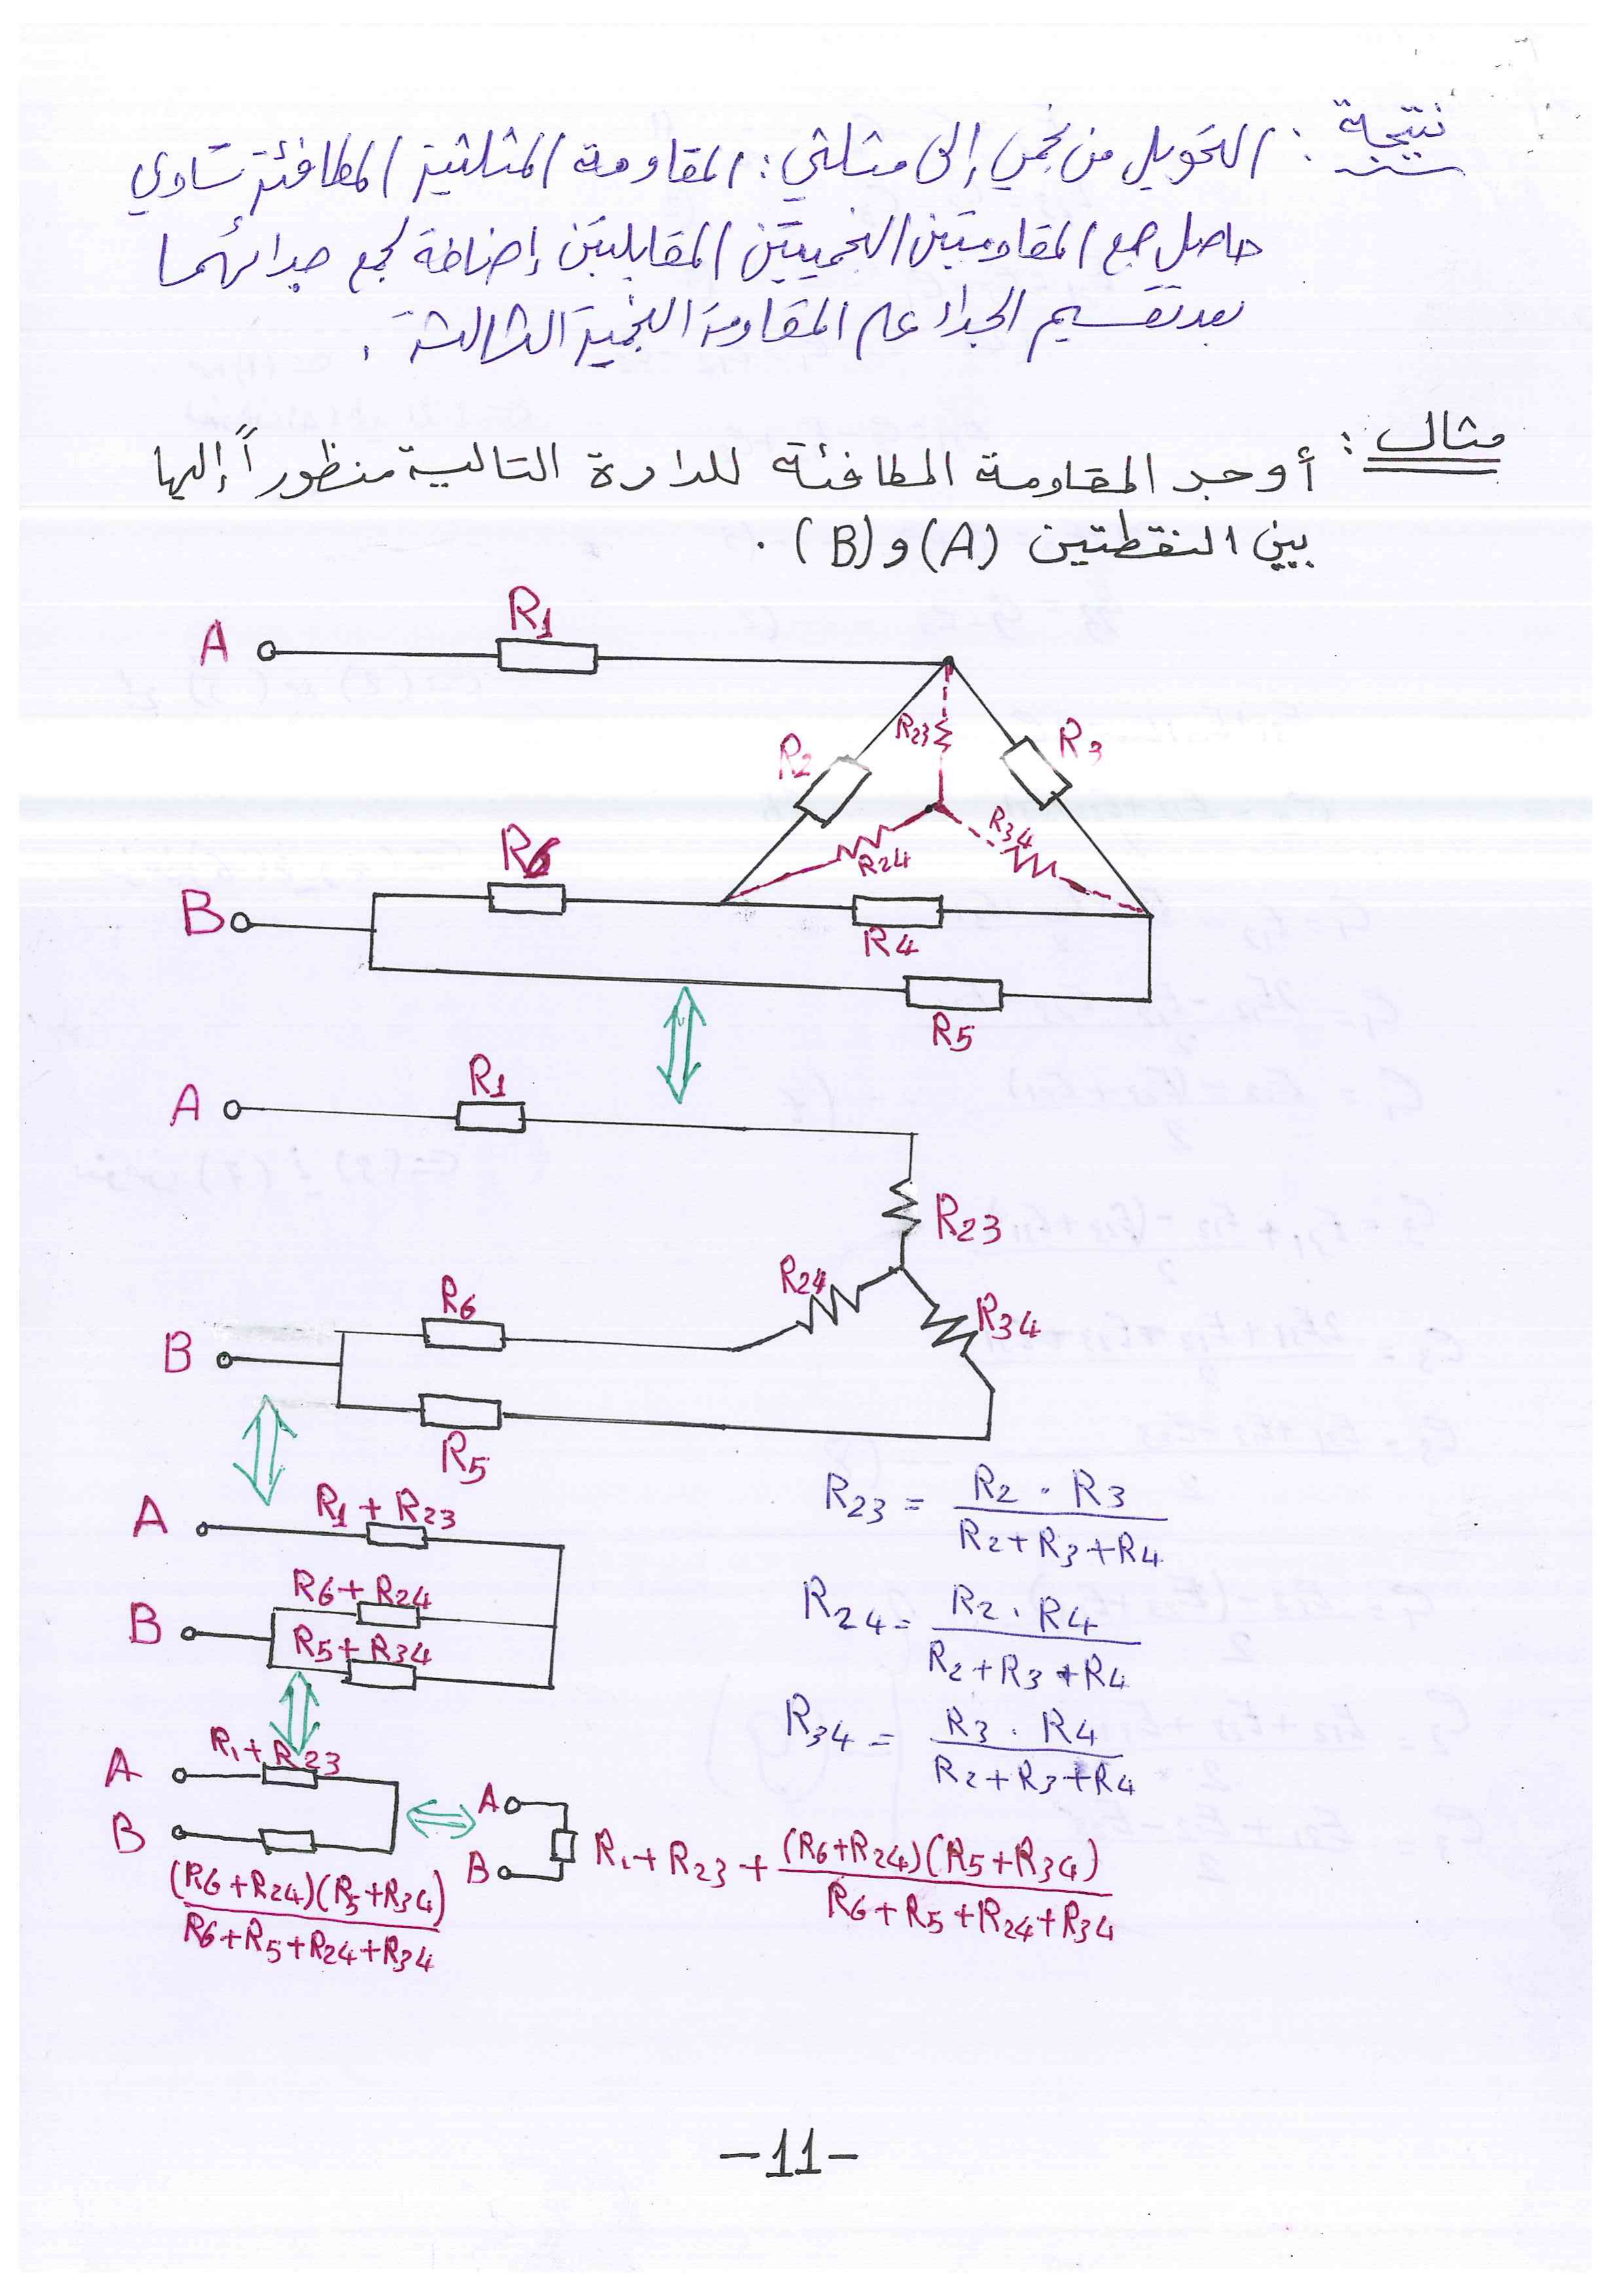 نتيجة : التحويل من نجمي إلى مثلثي : المقاومة المثلثية المكافئة تساوي
حاصل جمع المقاومتين النجميتين المقابلتين إضافة لجمع جدائهما
بعد تقسيم الجداء على المقاومة النجمية الثالثة .
مثال : أوجد المقاومة المكافئة للدارة التالية منظوراً إليها
بين النقطتين (A) و (B) .
R1
A
R23
R3
R2
R34
R24
R6
B
R4
R5
R1
A
R23
R24
R34
R6
B
R5
R23 = R2 . R3 / R2+R3+R4
R1 + R23
A
R6+R24
B
R5+R34
R24 = R2 . R4 / R2+R3+R4
R34 = R3 . R4 / R2+R3+R4
R1+R23
A
B
(R6+R24)(R5+R34) / R6+R5+R24+R34
A
B
R1+R23+ (R6+R24)(R5+R34) / R6+R5+R24+R34
-11-